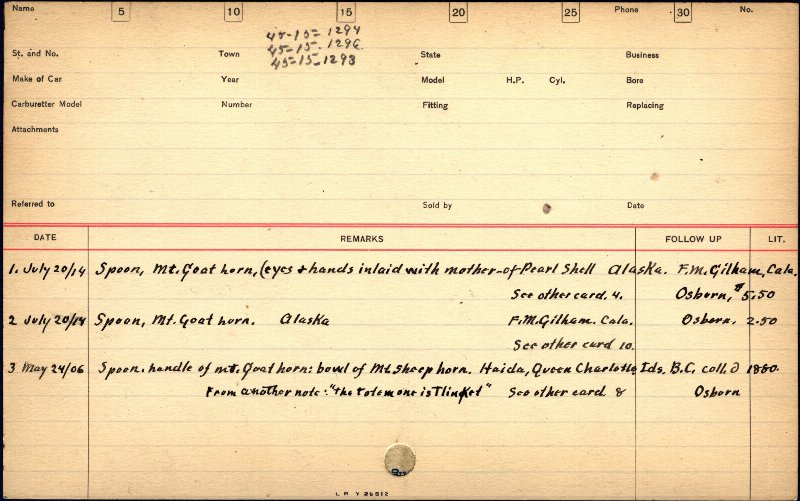 Name 5 10 15 20 25 Phone 30 No.
45-15-1294
St. and No. Town 45-15-1296 State Business
45-15-1293
Make of Car Year Model H.P. Cyl. Bore
Carburetter Model Number Fitting Replacing
Attachments
Referred to Sold by Date
DATE REMARKS FOLLOW UP LIT.
1. July 20/14 Spoon, Mt. Goat horn, (eyes & hands inlaid with mother-of-Pearl Shell Alaska. F.M. Gilham, Cala.
See other card. 4. Osborn, $5.50
2 July 20/14 Spoon, Mt. Goat horn. Alaska F.M. Gilham. Cala. Osborn. 2.50
See other card 10.
3 May 24/06 Spoon. handle of mt. Goat horn: bowl of Mt. sheep horn. Haida, Queen Charlotte Ids. B.C. coll. d 1880.
From another note: "the totem one is Tlinket" See other card 8 Osborn
L B Y 29512